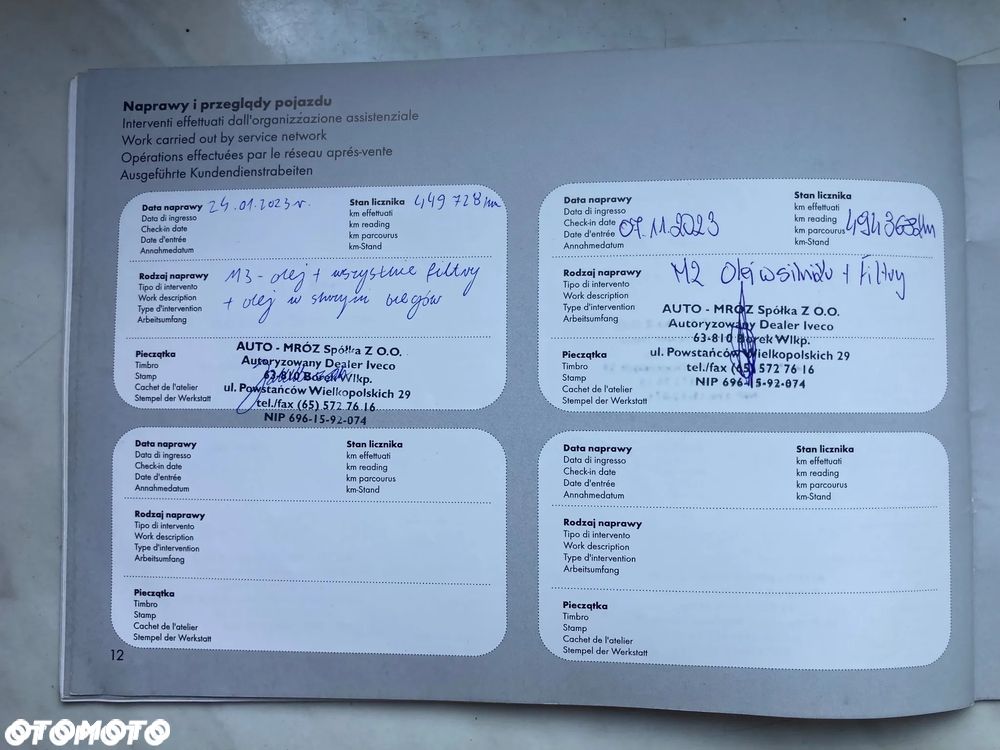 Naprawy i przeglądy pojazdu
Interventi effettuati dall'organizzazione assistenziale
Work carried out by service network
Opérations effectuées par le réseau aprés-vente
Ausgeführte Kundendienstrabeiten
Data naprawy 24.01.2023r. Stan licznika 449 728 km
Data di ingresso km effettuati
Check-in date km reading
Date d'entrée km parcourus
Annahmedatum km-Stand
Rodzaj naprawy M3 - olej + wszystkie filtry
Tipo di intervento
Work description + olej w skrzyni biegów
Type d'intervention
Arbeitsumfang
Pieczątka
Timbro
Stamp
Cachet de l'atelier
Stempel der Werkstatt
AUTO - MRÓZ Spółka Z O.O.
Autoryzowany Dealer Iveco
63-810 Borek Wlkp.
ul. Powstańców Wielkopolskich 29
tel./fax (65) 572 76 16
NIP 696-15-92-074
Data naprawy Stan licznika
Data di ingresso km effettuati
Check-in date km reading
Date d'entrée 07.11.2023 km parcourus 494368km
Annahmedatum km-Stand
Rodzaj naprawy M2 Olej w silniku + Filtry
Tipo di intervento
Work description
Type d'intervention
Arbeitsumfang
Pieczątka
Timbro
Stamp
Cachet de l'atelier
Stempel der Werkstatt
AUTO - MRÓZ Spółka Z O.O.
Autoryzowany Dealer Iveco
63-810 Borek Wlkp.
ul. Powstańców Wielkopolskich 29
tel./fax (65) 572 76 16
NIP 696-15-92-074
Data naprawy Stan licznika
Data di ingresso km effettuati
Check-in date km reading
Date d'entrée km parcourus
Annahmedatum km-Stand
Rodzaj naprawy
Tipo di intervento
Work description
Type d'intervention
Arbeitsumfang
Pieczątka
Timbro
Stamp
Cachet de l'atelier
Stempel der Werkstatt
Data naprawy Stan licznika
Data di ingresso km effettuati
Check-in date km reading
Date d'entrée km parcourus
Annahmedatum km-Stand
Rodzaj naprawy
Tipo di intervento
Work description
Type d'intervention
Arbeitsumfang
Pieczątka
Timbro
Stamp
Cachet de l'atelier
Stempel der Werkstatt
12
OTOMOTO